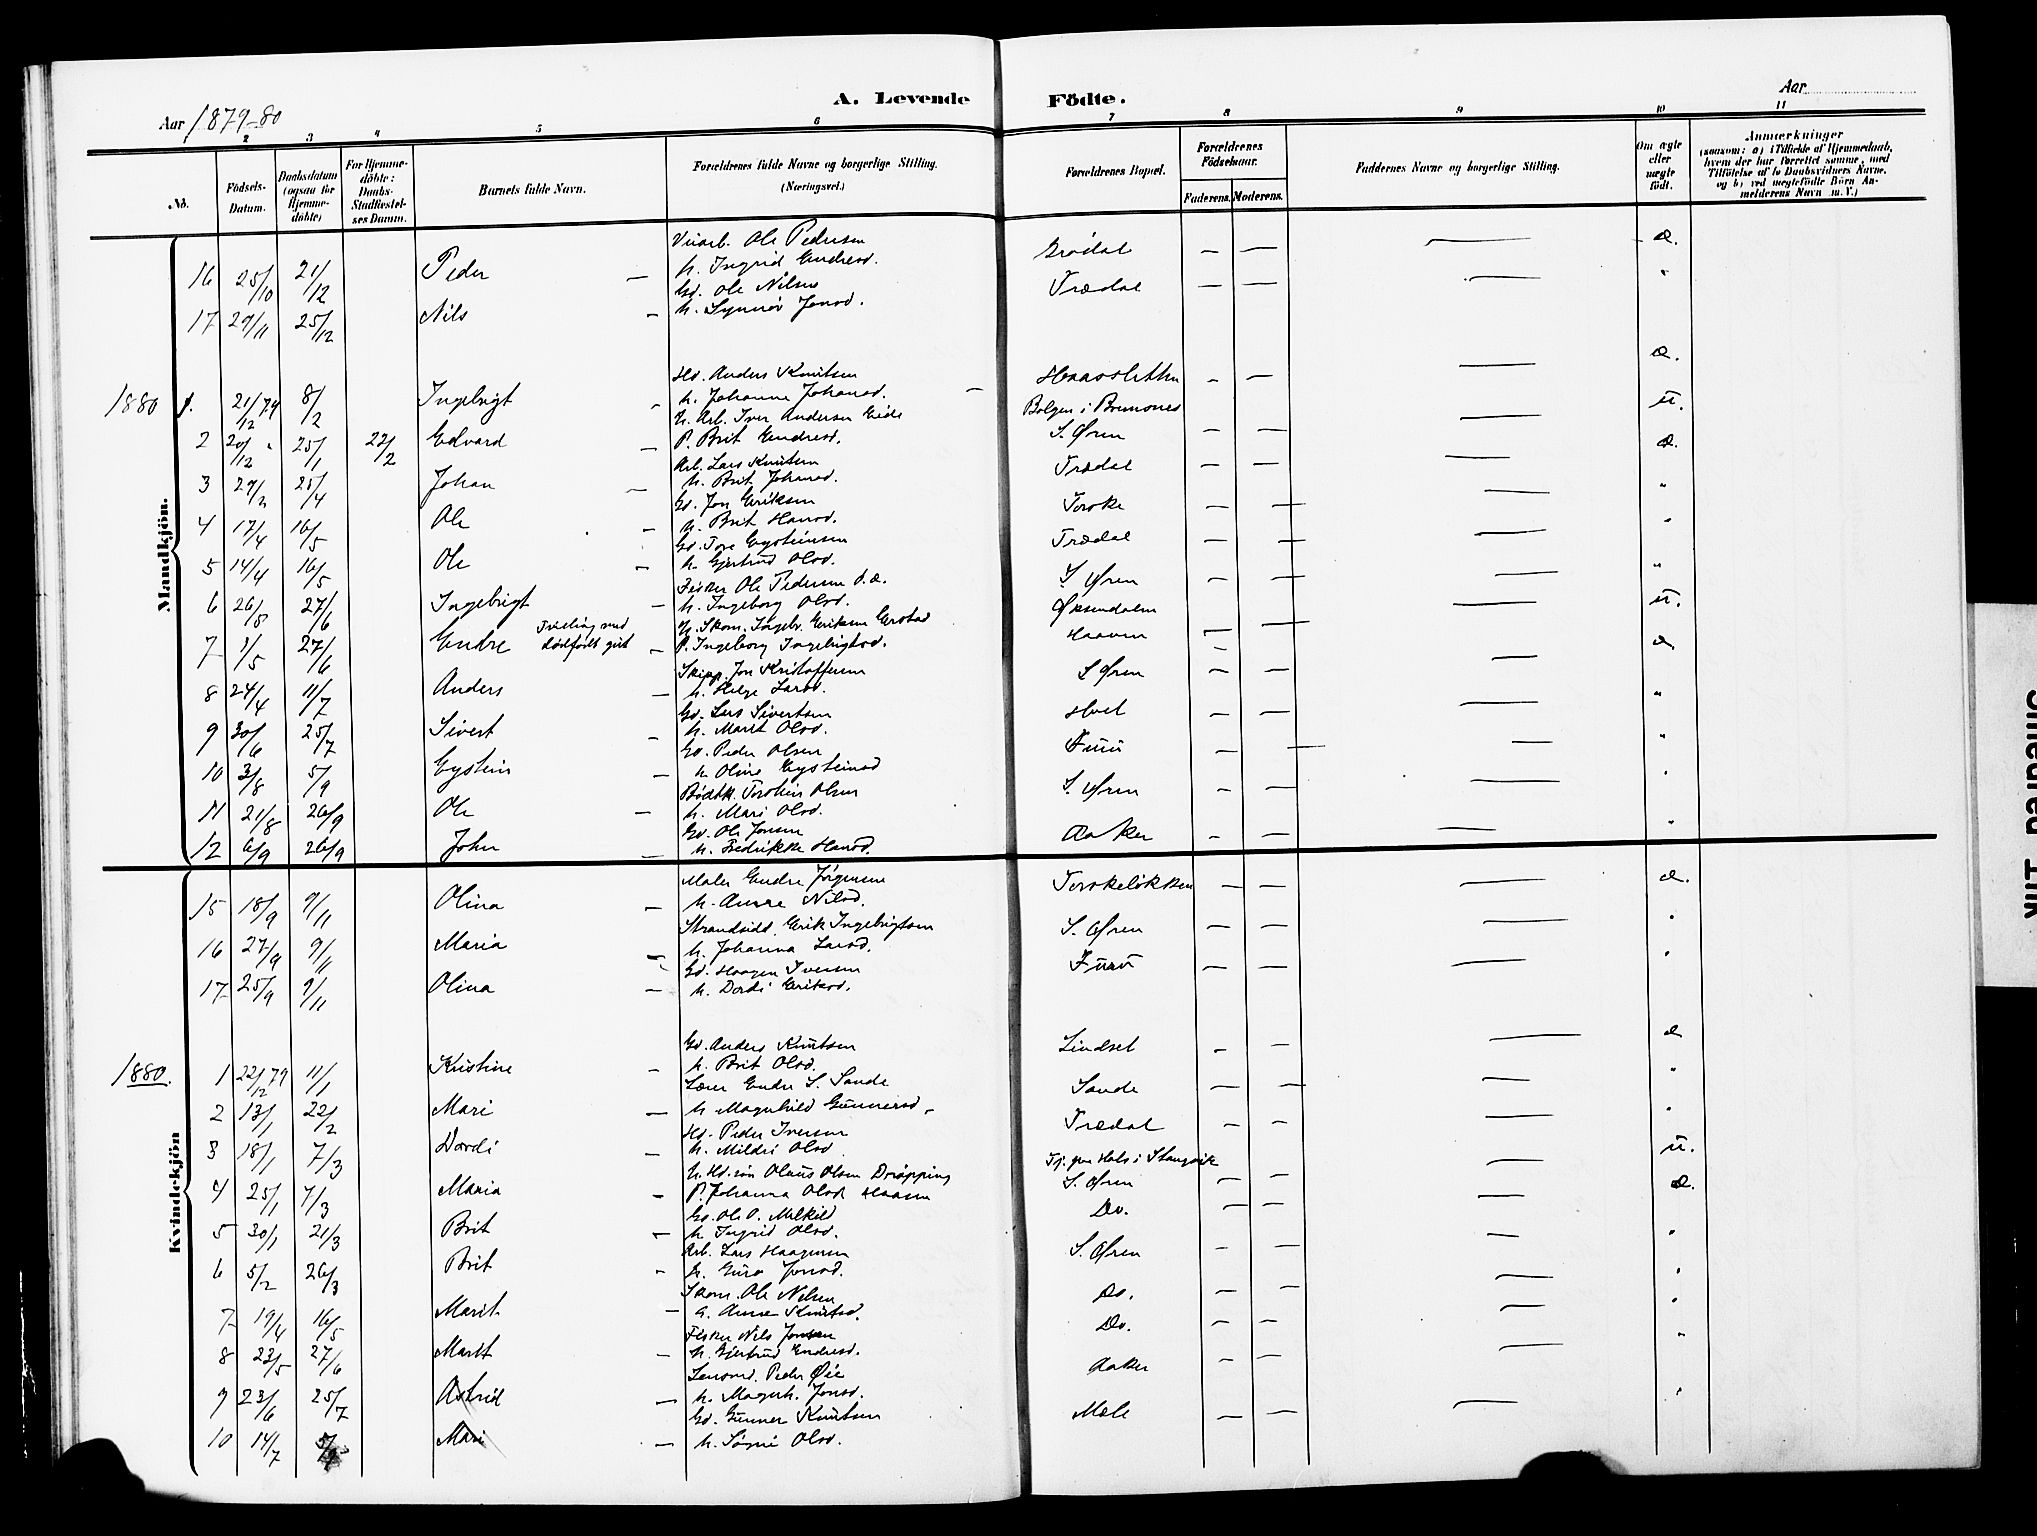 Aar 1879-80
A. Levende Födte.
Aar
2 3 4 5 6 7 8 9 10 11
No.
Födsels-Datum.
Daabsdatum (ogsaa for Hjemme-döbte)
For Hjemme-döbte: Daabs-Stadfæstel-ses Datum.
Barnets fulde Navn.
Forældrenes fulde Navne og borgerlige Stilling. (Næringsvei.)
Forældrenes Bopæl.
Forældrenes Födselsaar.
Faderens. Moderens.
Faddernes Navne og borgerlige Stilling.
Om ægte eller uægte födt.
Anmærkninger
(saasom: a) i Tilfælde af Hjemmedaab, hvem der har forrettet samme, med Tilföielse af to Daabsvidners Navne, og b) ved uægtefödte Börn An-melderens Navn m. V.)
Mandkjön.
Ole Pedersen
16 25/10 21/12 Peder — h. Ingrid Endresd. Grödal — — — æ.
Gd. Ole Nilsen
17 29/11 25/12 Nils — h. Synnöv Jonsd. Trædal — — — "
1880
Hd. Anders Knutsen
1. 21/12 79 8/2 Ingebrigt — h. Johanne Johansd. — Haasletten — — — æ.
U. Arb. Iver Andersen Eide Bolgen i Bremsnes
2 20/12 " 25/1 22/2 Edvard — P. Brit Endresd. S. Øren — — — u.
Arb. Lars Knutsen
3 29/2 25/4 Johan — h. Brit Johansd. Trædal — — — æ.
Gd. Jon Eriksen
4 17/4 16/5 Ole — h. Brit Hansd. Torske — — — "
Gd. Tore Eysteinsen
5 14/4 16/5 Ole — h. Gjertrud Olsd. Trædal — — — "
Fisker Ole Pedersen d.æ.
6 26/5 27/6 Ingebrigt — h. Ingeborg Olsd. S. Øren — — — "
U. Skom. Ingebr. Eriksen Gerstad Øksendalen
7 1/5 27/6 Endre Tvilling med dödfödt gut — P. Ingeborg Ingebrigtsd. Haaven — — — u.
Skipp. Jon Kristoffersen
8 24/4 11/7 Anders — h. Helge Larsd. S Øren — — — æ
Gd. Lars Sivertsen
9 30/6 25/7 Sivert — h. Marit Olsd. Hoel — — — "
Gd. Peder Olsen
10 3/8 5/9 Eystein — h Oline Eysteinsd Furu — — — "
Bödtk. Torstein Olsen
11 21/8 26/9 Ole — h. Mari Olsd. S. Øren — — — "
Gd. Ole Jonsen
12 6/9 26/9 John — h. Fredrikke Hansd. Aaker — — — "
Kvindekjön
Maler Endre Jörgensen
15 18/9 9/11 Olina — h. Anne Nilsd. Torskelökken — — — æ.
Strandsidd. Erik Ingebrigtsen
16 27/9 9/11 Maria — h. Johanna Larsd. S. Øren — — — "
Gd. Haagen Iversen
17 25/9 9/11 Olina — h. Dordi Eriksd. Furu — — — "
1880.
Gd. Anders Knutsen
1 22/12 79 11/1 Kristine — h. Brit Olsd. Lindset — — — æ
Lærer Endre S. Sande
2 13/1 22/2 Mari — h Magnhild Gunnersd. Sande — — — "
Hd. Peder Iversen
3 18/1 7/3 Dordi — h. Mildri Olsd Trædal — — — "
U. Hd. sön Olaus Olsen Dröpping Tj. paa Hals i Stangvik
4 25/1 7/3 Maria — P. Johanna Olsd Haaven S. Øren — — — u.
Gd. Ole O. Melkild
5 30/1 21/3 Brit — h Ingrid Olsd. Do. — — — æ.
Arb. Lars Haagensen
6 5/2 26/3 Brit — h. Guro Jonsd. S. Øren — — — "
Skom. Ole Nilsen
7 19/4 16/5 Marit — h. Anne Knutsd. Do. — — — "
Fisker Nils Jonsen
8 23/5 27/6 Marit — h. Gjertrud Endresd. Do. — — — "
Lensmd. Peder Öie
9 23/6 25/7 Astrid — h. Magnh. Jonsd. Aaker — — — "
Gd. Gunner Knutsen
10 14/7 5/9 Mari — h. Signi Olsd. Mæle — — — "